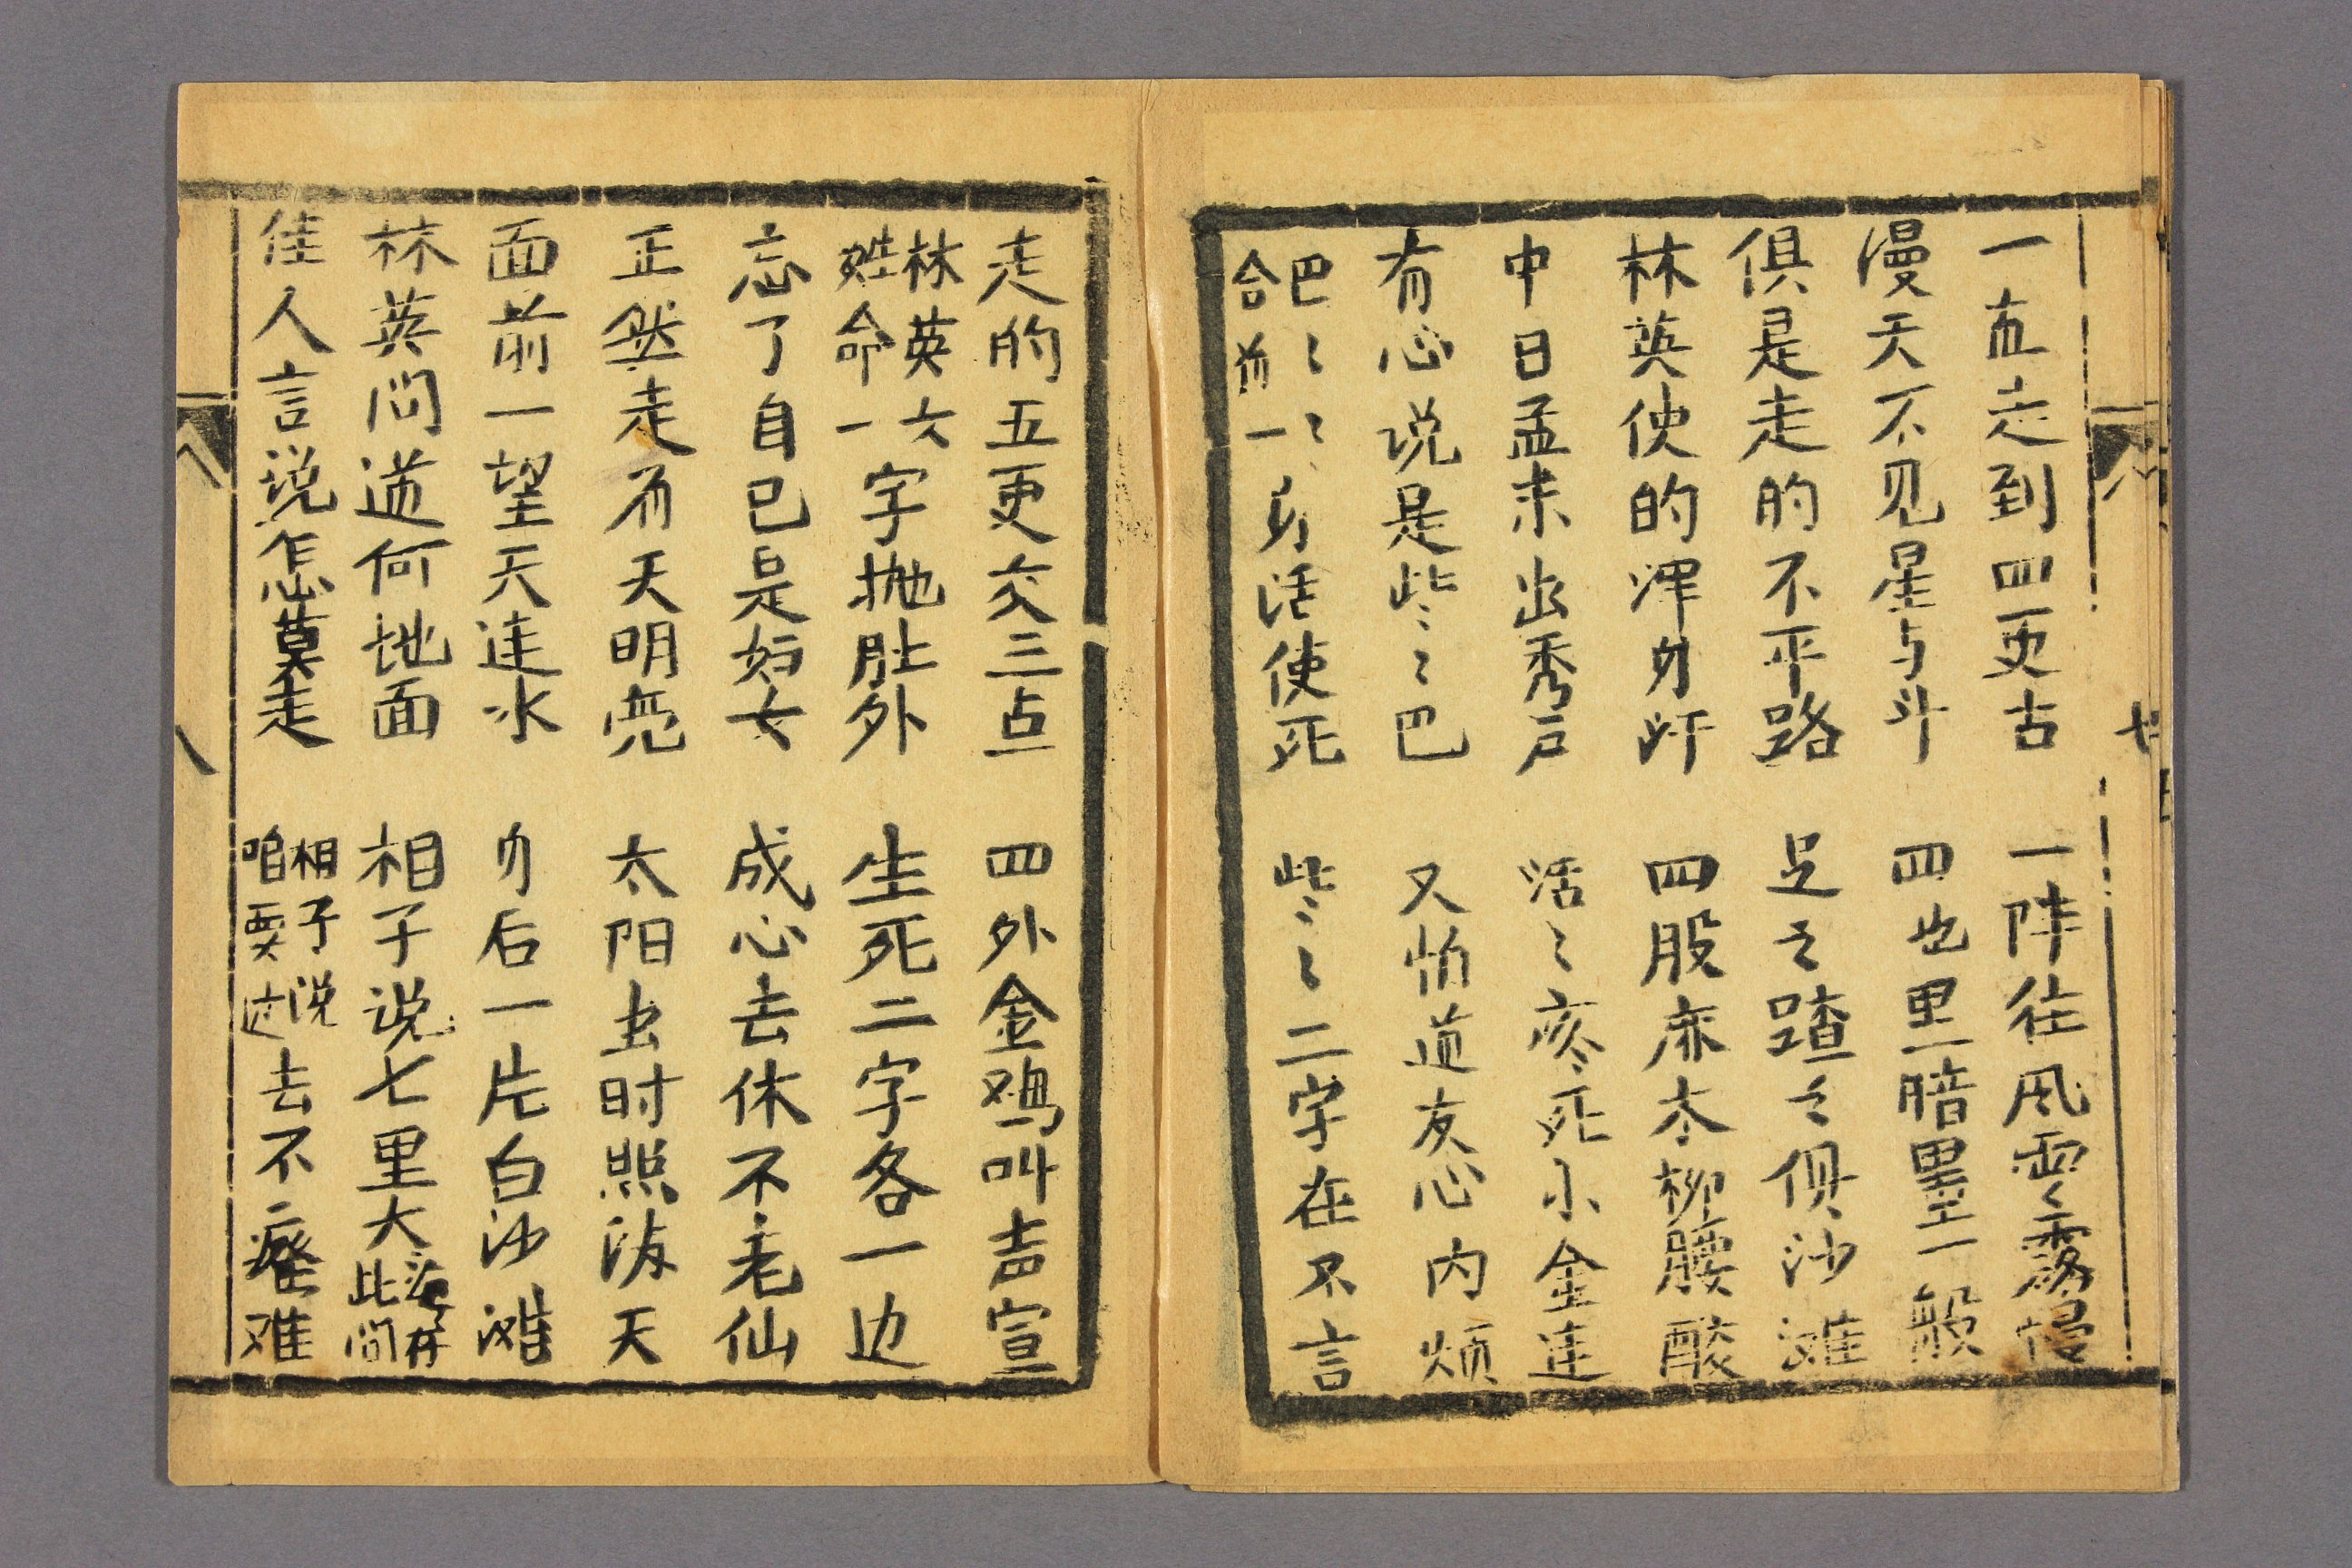 一直走到四更古 一阵往风雲霧侵
漫天不见星与斗 四也里暗墨一般
俱是走的不平路 足之蹅之俱沙滩
林英使的渾身奸 四股麻木柳腰酸
中日孟未出秀户 活〻疼死小金连
有心说是些〻巴 又怕道友心内烦
巴〻〻
合为一身活使死 些〻二字在不言
七
走的五更交三点 四外金鸡叫声宣
林英六
姓命一字抛肚外 生死二字各一边
忘了自己是妇女 成心去休不老仙
正然走有天明亮 太阳出时照满天
面前一望天连水 身后一片白沙滩
林英问道何地面 相子说七里大
此问
佳人言说怎莫走 相子说
咱要过去不难
八